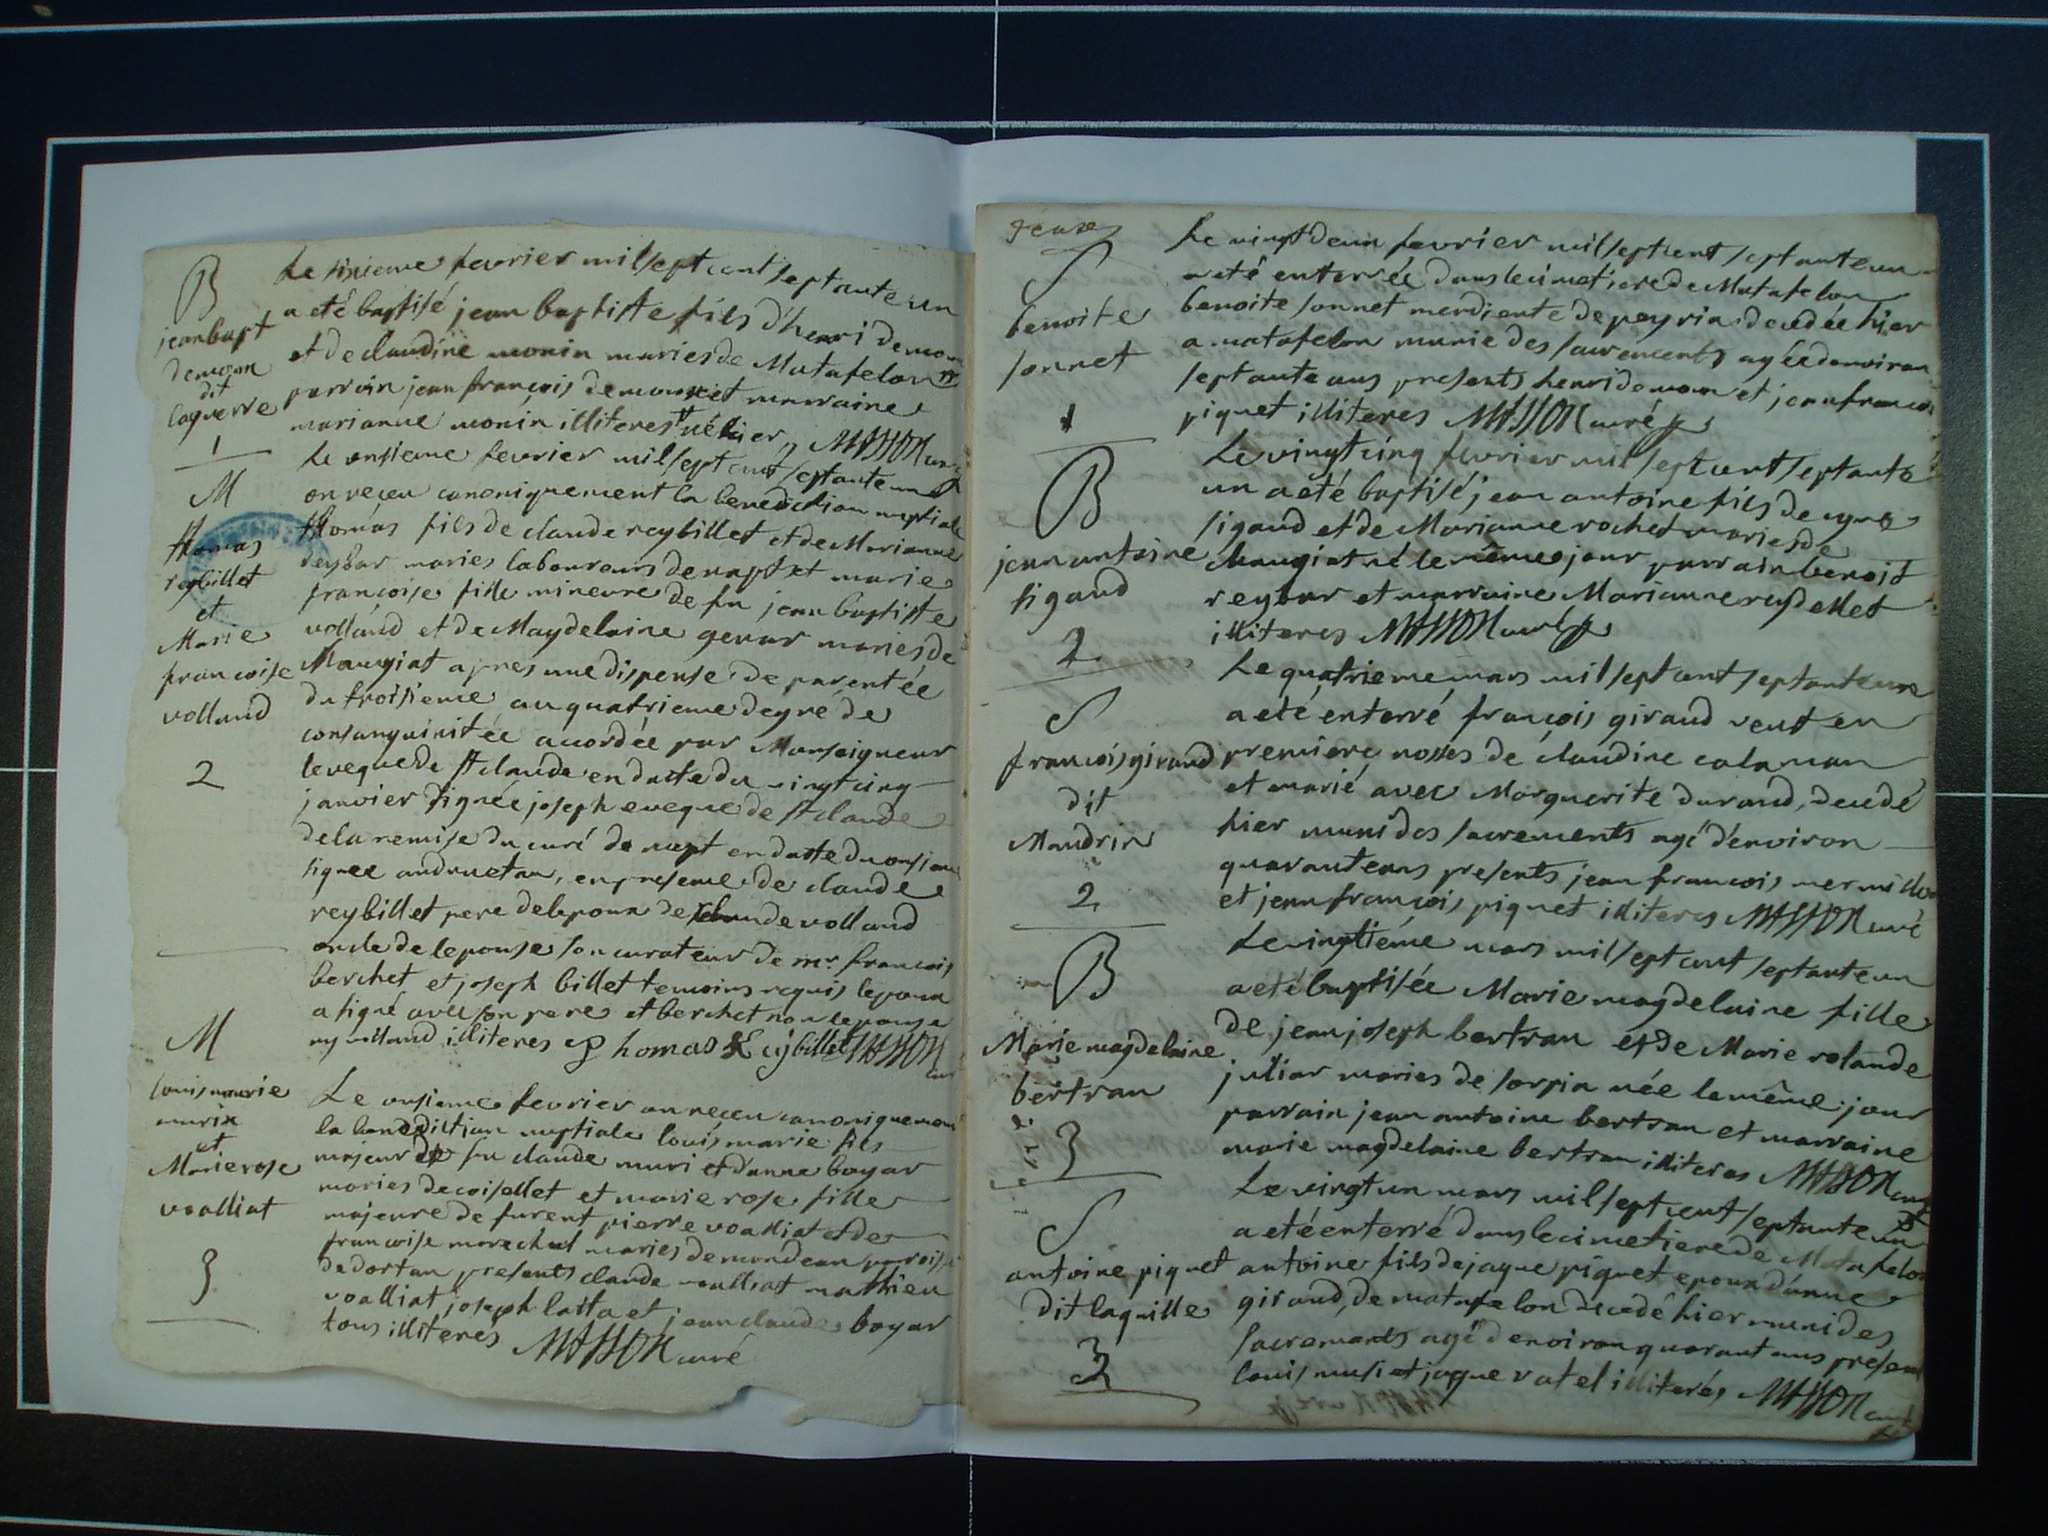 B
jean bapt
demoan
dit
laguerre
1
Le sixieme fevrier mil sept cent septante un
a eté baptisé jean baptiste fils d'henri demoan
et de claudine monin mariés de Matafelon
parrain jean françois demoan et marraine
marianne monin illiteres né hier MASSON curé
M
thomas
reybillet
et
Marie
françoise
volland
2
Le onsieme fevrier mil sept cent septante un
on reçeu canoniquement la benediction nuptiale
thomas fils de claude reybillet et de Marianne
reybar maries laboureurs de napt et marie
françoise fille mineure de fu jean baptiste
volland et de Magdelaine genar maries de
Maugiat apres une dispense de parentée
du troisieme au quatrieme degré de
consanguinitée accordée par Monseigneur
leveque de st claude en datte du vingt cinq
janvier signée joseph eveque de st claude
de la remise du curé de napt en datte du onsieme
signee andruetan, en presence de claude
reybillet pere de lepoux de claude volland
oncle de lepouse son curateur de mr françois
berchet et joseph billet temoins requis lepoux
a signé avec son pere et berchet non lepouse
ny volland illiteres thomas Reybillet MASSON
curé
M
louis marie
murix
et
Marie rose
voalliat
3
Le onsieme fevrier on reçeu canoniquement
la benediction nuptiale louis marie fils
majeur de fu claude muri et d'anne boyar
maries de coisellet et marie rose fille
majeure de furent pierre voalliat et de
françoise marechal maries de mondean paroisse
de dortan presents claude voalliat mathieu
voalliat joseph laita et jean claude boyar
tous illiteres MASSON curé
S
benoite
sonnet
1
Le vingt deux fevrier mil sept cent septante un
a eté enterrée dans le cimetiere de Matafelon
benoite sonnet mendiente de peyria decedée hier
a matafelon munie des sacrements agée denviron
septante ans presents henri demoan et jean françois
piquet illiteres MASSON curé
B
jean antoine
sigaud
2
Le vingt cinq fevrier mil sept cent septante
un a eté baptisé jean antoine fils de cyne
sigaud et de Marianne rochet maries de
Maugiat né le même jour parrain benoit
reybar et marraine Marianne reydellet
illiteres MASSON curé
S
françois giraud
dit
Mandrin
2
Le quatrieme mars mil sept cent septante une
a eté enterré françois giraud veuf en
premiere nosses de claudine calaman
et marié avec Marguerite durand, decedé
hier muni des sacrements agé d'environ
quarante ans presents jean françois mermillon
et jean françois piquet illiteres MASSON curé
B
Marie magdelaine
bertran
3
Le vingtiéme mars mil sept cent septante un
a eté baptisée Marie magdelaine fille
de jean joseph bertran et de Marie rolande
juliar maries de sorpia née le même jour
parrain jean antoine bertran et marraine
marie magdelaine bertran illiteres MASSON curé
S
antoine piquet
dit laquille
3
Le vingt un mars mil sept cent septante un
a eté enterré dans le cimetiere de Matafelon
antoine fils de jaque piquet epoux d'anne
giraud, de matafelon decedé hier muni des
sacrements agé denviron quarant ans presents
louis musi et jaque vatel illiterés MASSON curé